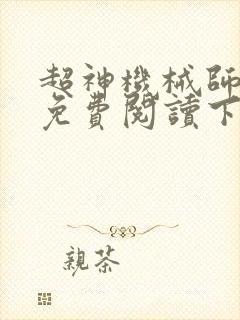 超神機械師
免費閱讀下
親茶